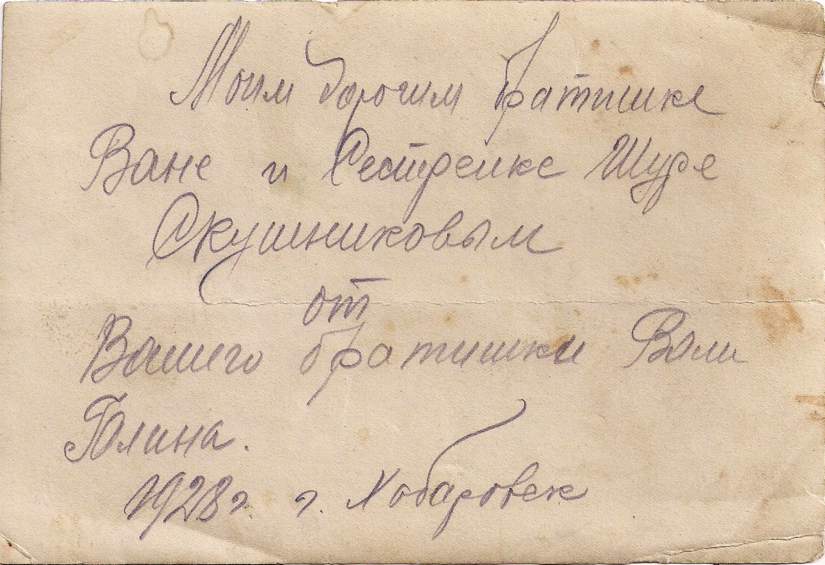 Моим дорогим братишке
Ване и Сестренке Шуре
Скушниковым
от
Вашего братишки Вали
Голина.
1928 г. г. Хабаровск